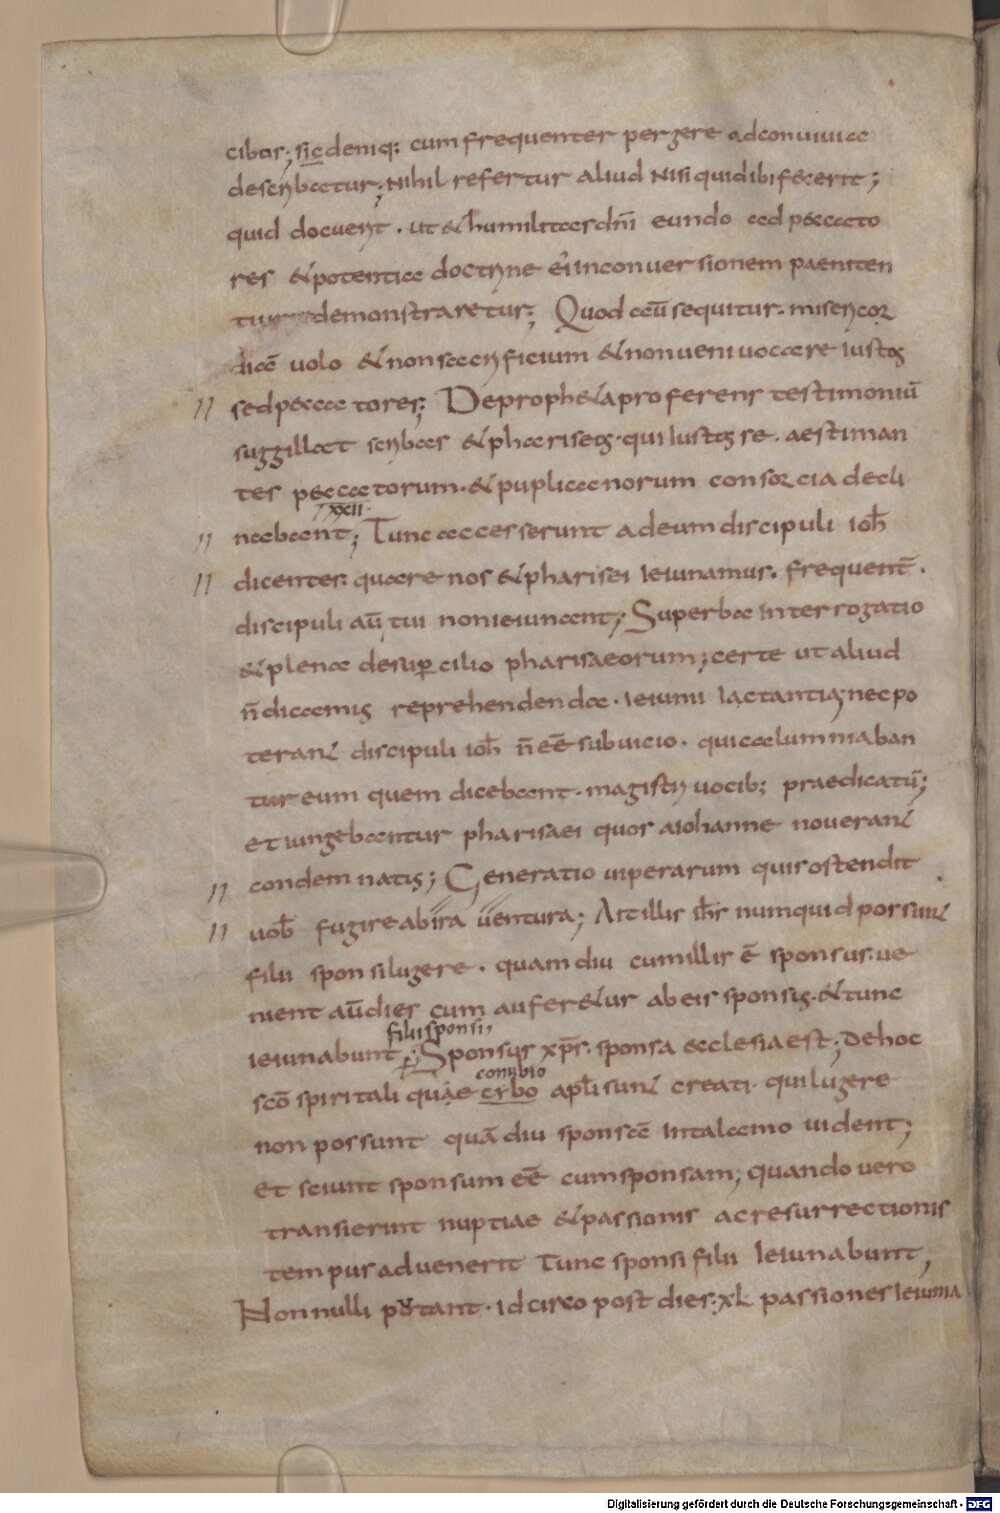 cibos; sic deniq: cum frequenter pergere ad conuiuia
describatur; Nihil refertur aliud Nisi quid ibi fecerit;
quid docuerit. ut & humilitas dñi eundo ad pecccato
res & potentia doctrine ei᷒ in conuersionem paeniten
tium demonstraretur; Quod aũ sequitur. misericor
diā uolo & non sacrificium & non ueni uocare iustos
sed peccatores; De propheta proferens testimoniũ
suggillat scribas & phariseos. qui iustos se. aestiman
tes peccatorum. & puplicanorum consorcia decli
XXII.
nabant; Tunc accesserunt ad eum discipuli ioh̄
dicentes. quare nos & pharisei Ieiunamus. frequent̄.
discipuli aū tui non ieiunant; Superba interrogatio
& plena desuꝑcilio pharisaeorum; certe ut aliud
n̄ dicamus reprehendenda. Ieiunii iactantia; nec po
terant discipuli ioh̄ n̄ eē sub uicio. qui calumniaban
tur eum quem dicebant. magistri uocib; praedicatū;
et iungebantur pharisaei quos a iohanne nouerant
condemnatis; Generatio uiperarum quis ostendit
uob̄ fugire ab ira uentura; Ait illis ih̄s numquid possunt
filii sponsi lugere. quamdiu cum illis ē sponsus. ue
nient aū dies cum auferetur ab eis sponsus. & tunc
filii sponsi,
ieiunabunt; Sponsus xp̄s. sponsa ecclesia est; De hoc
conubio
scō spiritali quae erbo apl̄i sunt creati. qui lugere
non possunt quā diu sponsā in talamo uident;
Et sciunt sponsum eē cum sponsam; quando uero
transierint nuptiae & passionis ac resurrectionis
tempus aduenerit Tunc sponsi filii Ieiunabunt,
Nonnulli putant. idcirco post dies. xl. passiones Ieiunia
Digitalisierung gefördert durch die Deutsche Forschungsgemeinschaft - DFG